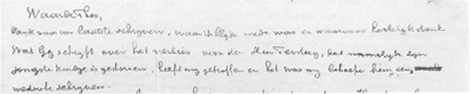 Waarde Theo,
Dank voor uw laatste schrijven, waar ik blijde mede was en waarvoor hartelijk dank
Wat Gij schrijft over het verlies van den Heer Tersteeg, dat namelijk zijn
jongste kindje is gestorven, heeft mij getroffen en het was mij behoefte hem eens
weder te schrijven.